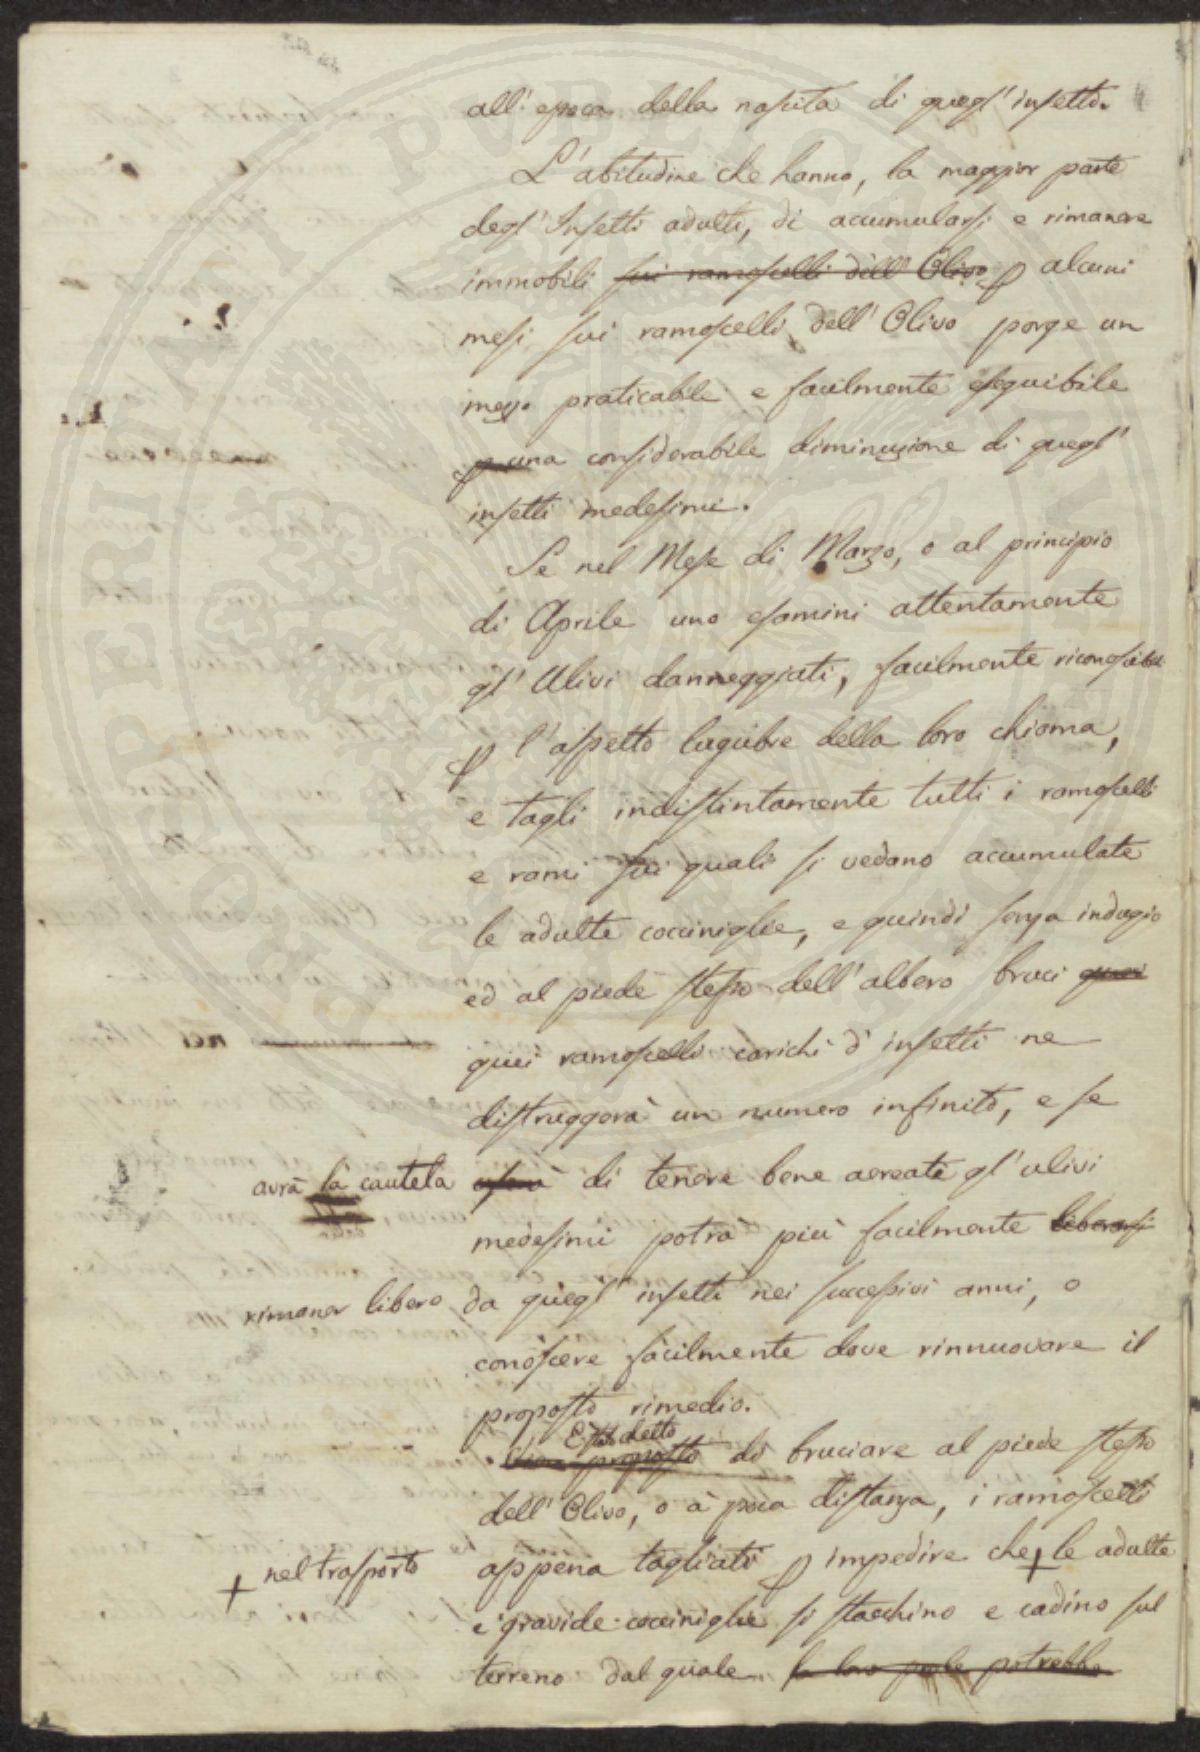 all'epoca della nascita di quegl'insetti.
L'abitudine che hanno, la maggior parte
degl'Insetti adulti, di accumularsi e rimanere
immobili sui ramoscelli dell'Olivo p alcuni
mesi sui ramoscelli dell'Olivo porge un
mezzo praticabile e facilmente eseguibile
p una considerabile diminuzione di quegl'
insetti medesimi.
Se nel Mese di Marzo, o al principio
di Aprile uno esamini attentamente
gl'Ulivi danneggiati, facilmente riconoscibili
p l'aspetto lugubre della loro chioma,
e tagli indistintamente tutti i ramoscelli
e rami sui quali si vedano accumulate
le adulte cocciniglie, e quindi senza indugio
ed al piede stesso dell'albero bruci
quei ramoscelli carichi d'insetti ne
distruggerà un numero infinito, e se
avrà la cautela di tenere bene aereati gl'ulivi
medesimi potrà più facilmente liberarsi
rimaner libero da quegl'insetti nei successivi anni, o
conoscere facilmente dove rinnuovare il
proposto rimedio.
Ho detto
proposto di bruciare al piede stesso
dell'Olivo, o a poca distanza, i ramoscelli
appena tagliati p impedire che + le adulte
+ nel trasporto
e gravide cocciniglie si stacchino e cadino sul
terreno dal quale la loro prole potrebbe